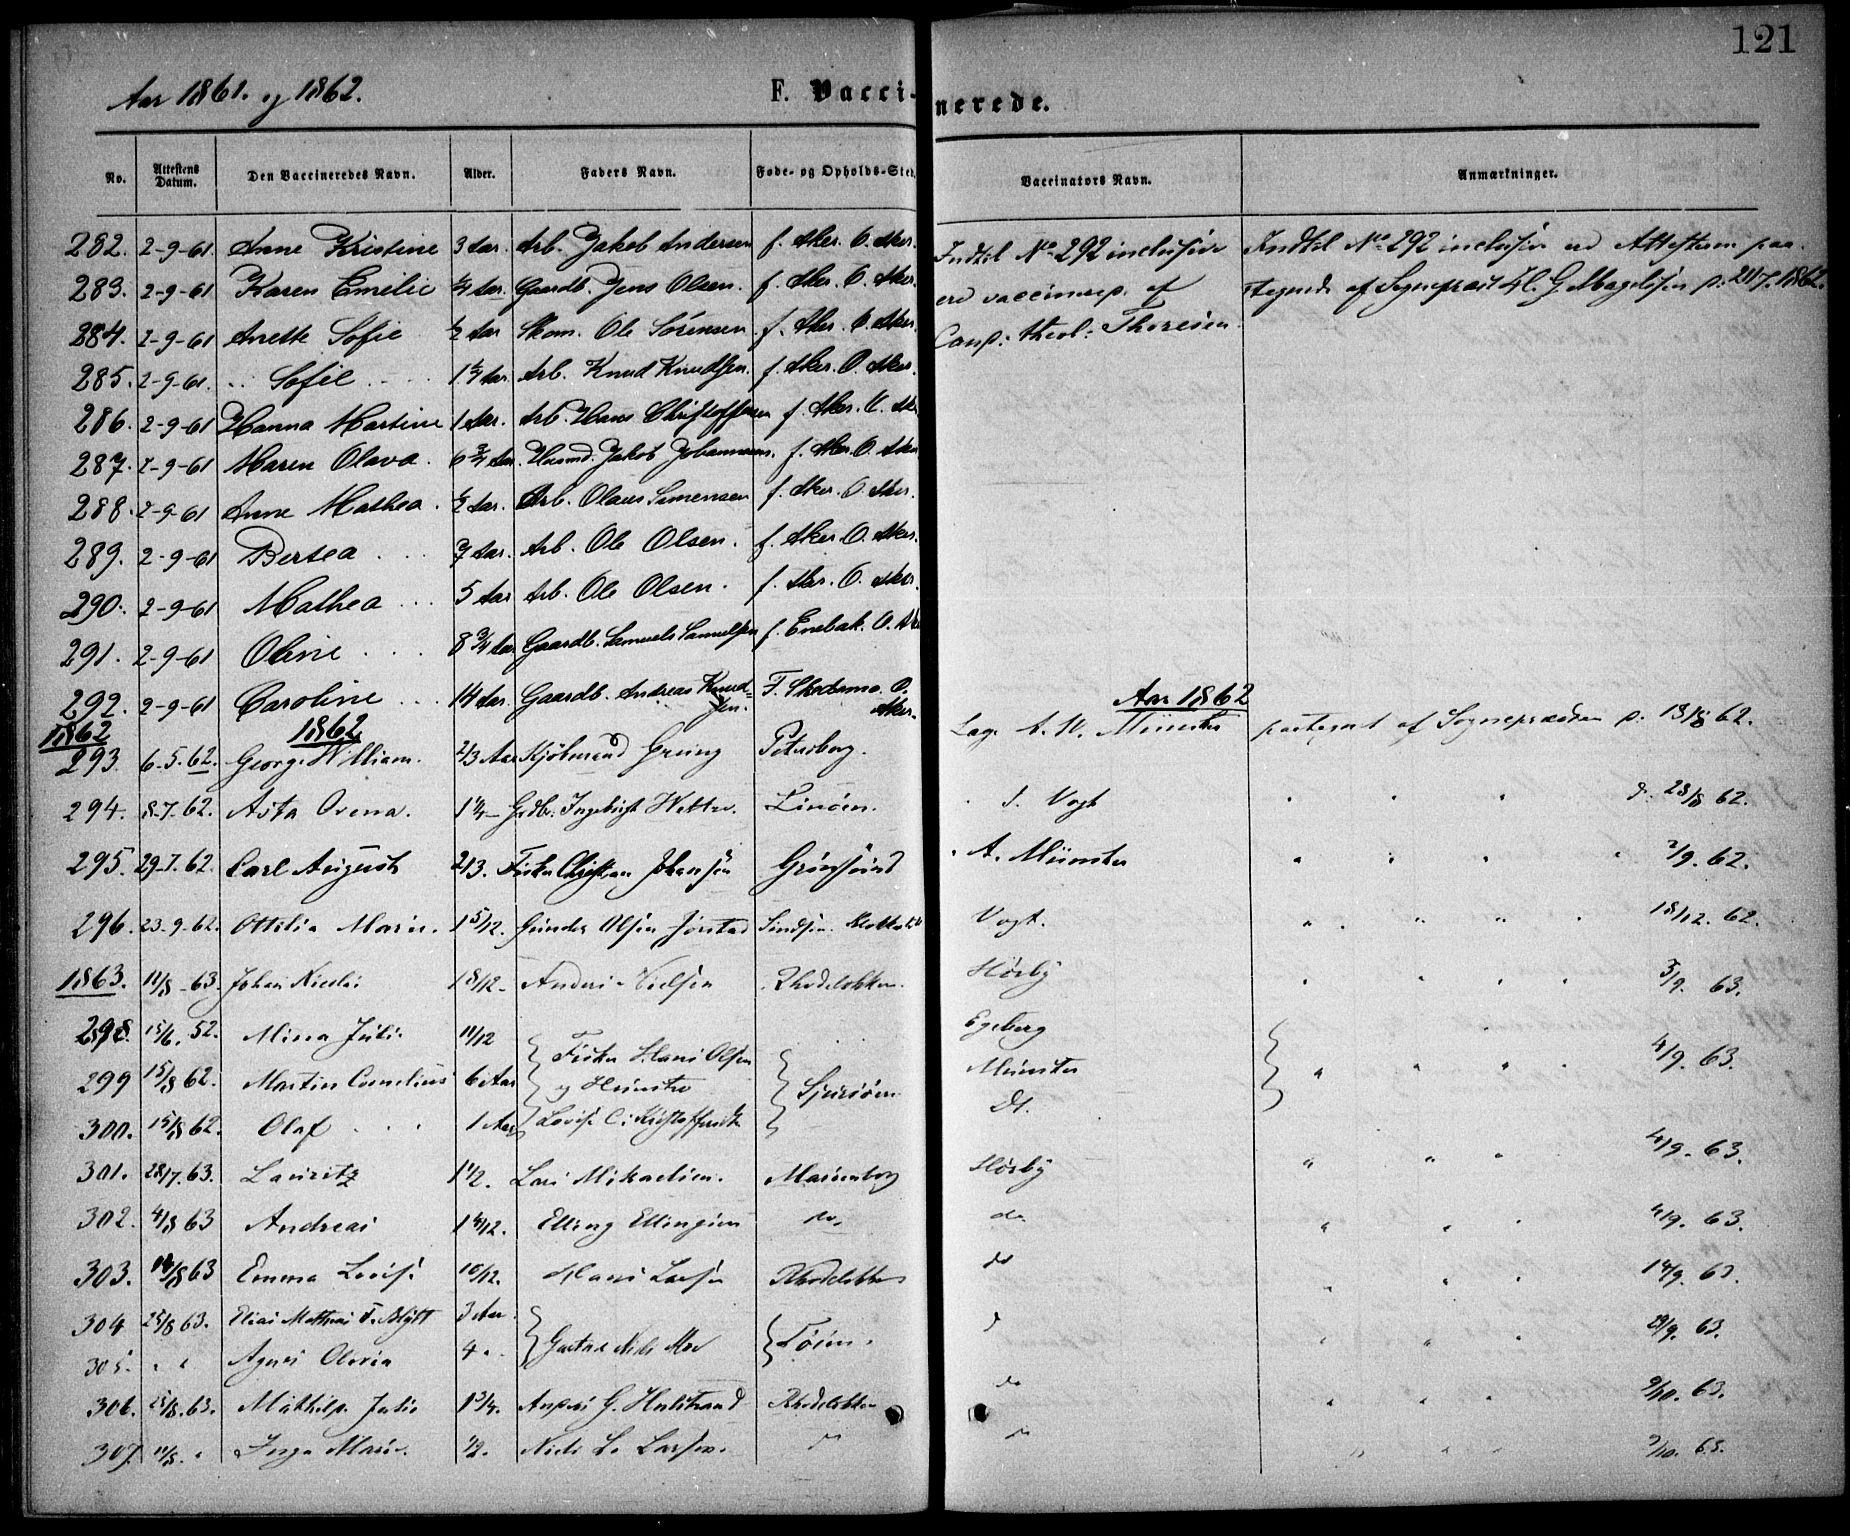 121
Aar 1861. og 1862.
F. Vaccinerede.
No. Attestens Datum. Den Vaccineredes Navn. Alder. Faders Navn. Føde- og Opholds-Sted. Vaccinators Navn. Anmærkninger.
282. 2-9-61. Anne Kristine 3 Aar. Arb. Jakob Andersen f. Aker. O. Aker. Indtil No 292 inclusive Indtil No 292 inclusive er Attesterne paa-
283. 2-9-61 Karen Emilie 1/4 Aar. Gaardb. Jens Olsen. f. Aker. O. Aker. ere vaccinerede af tegnede af Sognepræst
284. 2-9-61 Anette Sofie 1/2 Aar Skom. Ole Sörensen f. Aker. O. Aker. Cand: theol: Thoresen
285. 2-9-61. Sofie 1 1/4 Aar. Arb. Knud Knudsen. f. Aker. O. Aker.
286. 2-9-61 Hanna Martine 1 Aar. Arb. Hans Christoffersen f. Aker. O. Ak
287. 2-9-61 Maren Olava. 6 3/4 Aar. Husmd. Jakob Johannesen. f. Aker. O. Aker
288. 2-9-61 Anne Mathea. 1/2 Aar. Arb. Olaus Simensen f. Aker. O. Aker.
289. 2-9-61 Bertea 7 Aar. Arb. Ole Olsen. f. Aker. O. Aker.
290. 2-9-61 Mathea 5 Aar Arb. Ole Olsen. f. Aker. O. Aker.
291. 2-9-61 Oline 8 3/4 Aar Gaardb. Samuels Samuelsen f. Enebak. O. Ake
292. 2-9-61 Caroline 14 Aar. Gaardb. Andreas Knud-
sen. O. Aker.
1862 1862. Aar 1862
293. 6-5-62. George William. 2/3 Aar Kjöbmand Petersborg. Læge A. W. Münster paategnet af Sognepræsten d. 13/8 62.
294. 8-7-62. Asta Ovena. 1 1/4 Gdbr. Linöen. " S. Vogt " " " d. 28/8 62.
295. 29-7-62. Carl August 2/3. Fisker Christian Johansen Grönsund " A. Münster " " " " 2/9. 62.
296. 23-9-62. Ottilia Marie. 1 5/12. Gunder Olsen Jörstad Vogt. " " " " 18/12. 62.
1863. 11/8-63. Johan Nicolai 1 8/12. Rhodelökken. Hörby " " " " 3/9. 63.
298. 15/6. 52. Mina Juli 11/12 Egeberg
299 15/8 62. Martin Cornelius 6 Aar Fisker Hans Olsen
og Hustru Sjursöen Münster " " " " 4/9. 63.
300. 15/8 62. Olaf 1 Aar Lovise C: Dt.
301. 28/7. 63. Lauritz 1 1/2. Lars Mikaelsen. Marienborg Hörby " " " 4/9. 63.
302. 4/8 63 Andreas 1 4/12. Elling Ellingsen do. do " " " 4/9. 63.
303. 14/8 63 Emma Lovise 10/12. Hans Larsen Rhodelökken do " " " 14/9. 63.
304 25/8 63. Elias Mathias F. Blytt 3 Aar. d " " " 29/9. 63.
305. " " Agnes Olivia 4 "
306. 25/8. 63. Mathilde Julie 1 3/4. Rhodelökken do " " " 9/10. 63.
307. 11/8. " Inga Marie. 1/2. Niels L. Larsen. do do " " "